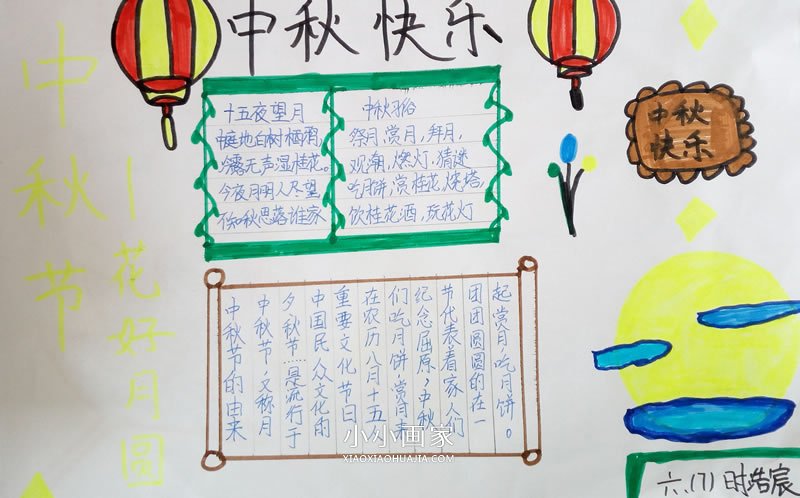 中秋快乐
中秋节
一花好月圆
十五夜望月
中庭地白树栖鸦,
冷露无声湿桂花。
今夜月明人尽望,
不知秋思落谁家
中秋习俗
祭月,赏月,拜月,
观潮,燃灯,猜迷
吃月饼,赏桂花,烧塔,
饮桂花酒,玩花灯
中秋
快乐
中秋节的由来
中秋节、又称月
夕、秋节……是流行于
中国民众文化的
重要文化节日
在农历八月十五人
们吃月饼,赏月来
纪念屈原,中秋
节代表着家人们
团团圆圆的在一
起赏月,吃月饼。
小小画家
XIAOXIAOHUAJIA.COM
六、(7)时浩宸